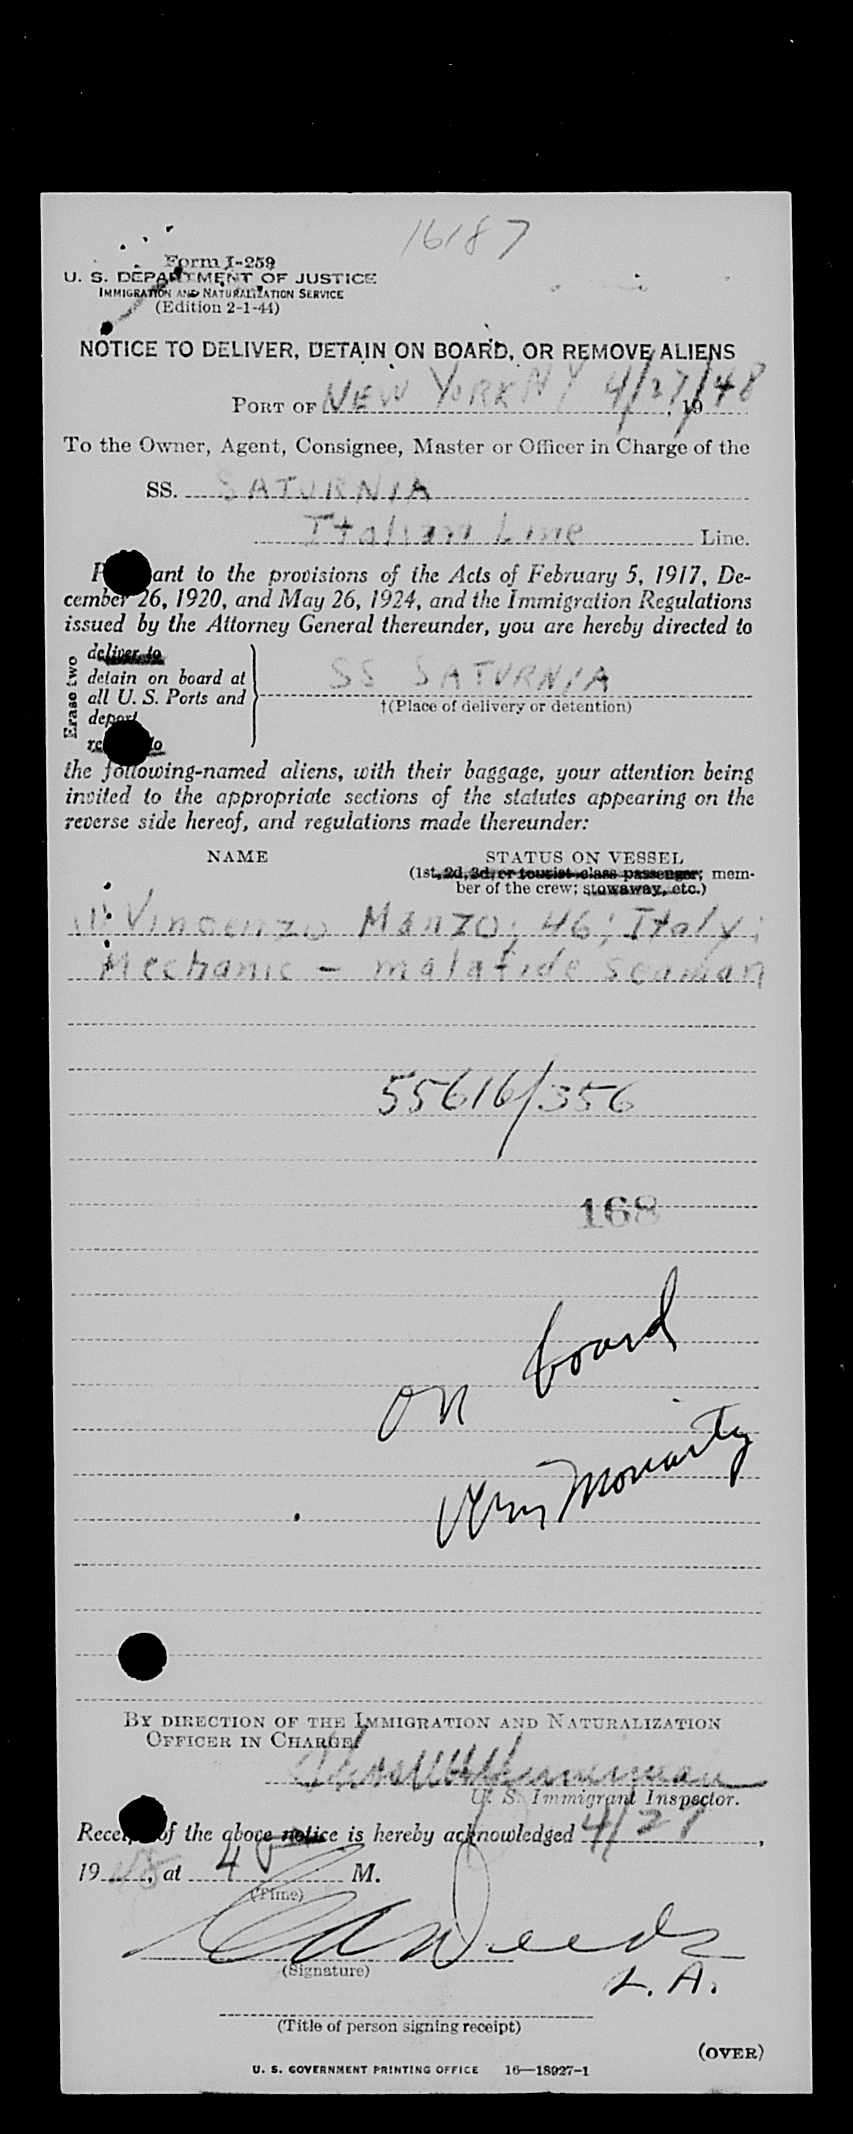 16187
Form I-259
U. S. DEPARTMENT OF JUSTICE
IMMIGRATION AND NATURALIZATION SERVICE
(Edition 2-1-44)
NOTICE TO DELIVER, DETAIN ON BOARD, OR REMOVE ALIENS
PORT OF NEW YORK NY 4/27/48, 19
To the Owner, Agent, Consignee, Master or Officer in Charge of the
SS. SATURNIA
Italian Line Line.
P ant to the provisions of the Acts of February 5, 1917, De-
cember 26, 1920, and May 26, 1924, and the Immigration Regulations
issued by the Attorney General thereunder, you are hereby directed to
Erase two
deliver to
detain on board at
all U. S. Ports and
deport
re to
SS SATURNIA
†(Place of delivery or detention)
the following-named aliens, with their baggage, your attention being
invited to the appropriate sections of the statutes appearing on the
reverse side hereof, and regulations made thereunder:
NAME STATUS ON VESSEL
(1st, 2d, 3d, or tourist class passenger; mem-
ber of the crew; stowaway, etc.)
(1) Vincenzo Manzo; 46; Italy;
Mechanic - malafide seaman
55616/356
168
on board
Moriarty
BY DIRECTION OF THE IMMIGRATION AND NATURALIZATION
OFFICER IN CHARGE:
U. S. Immigrant Inspector.
Receipt of the above notice is hereby acknowledged 4/27,
19 48, at 4 P M.
(Time)
(Signature)
L. A.
(Title of person signing receipt)
(OVER)
U. S. GOVERNMENT PRINTING OFFICE 16—18927-1